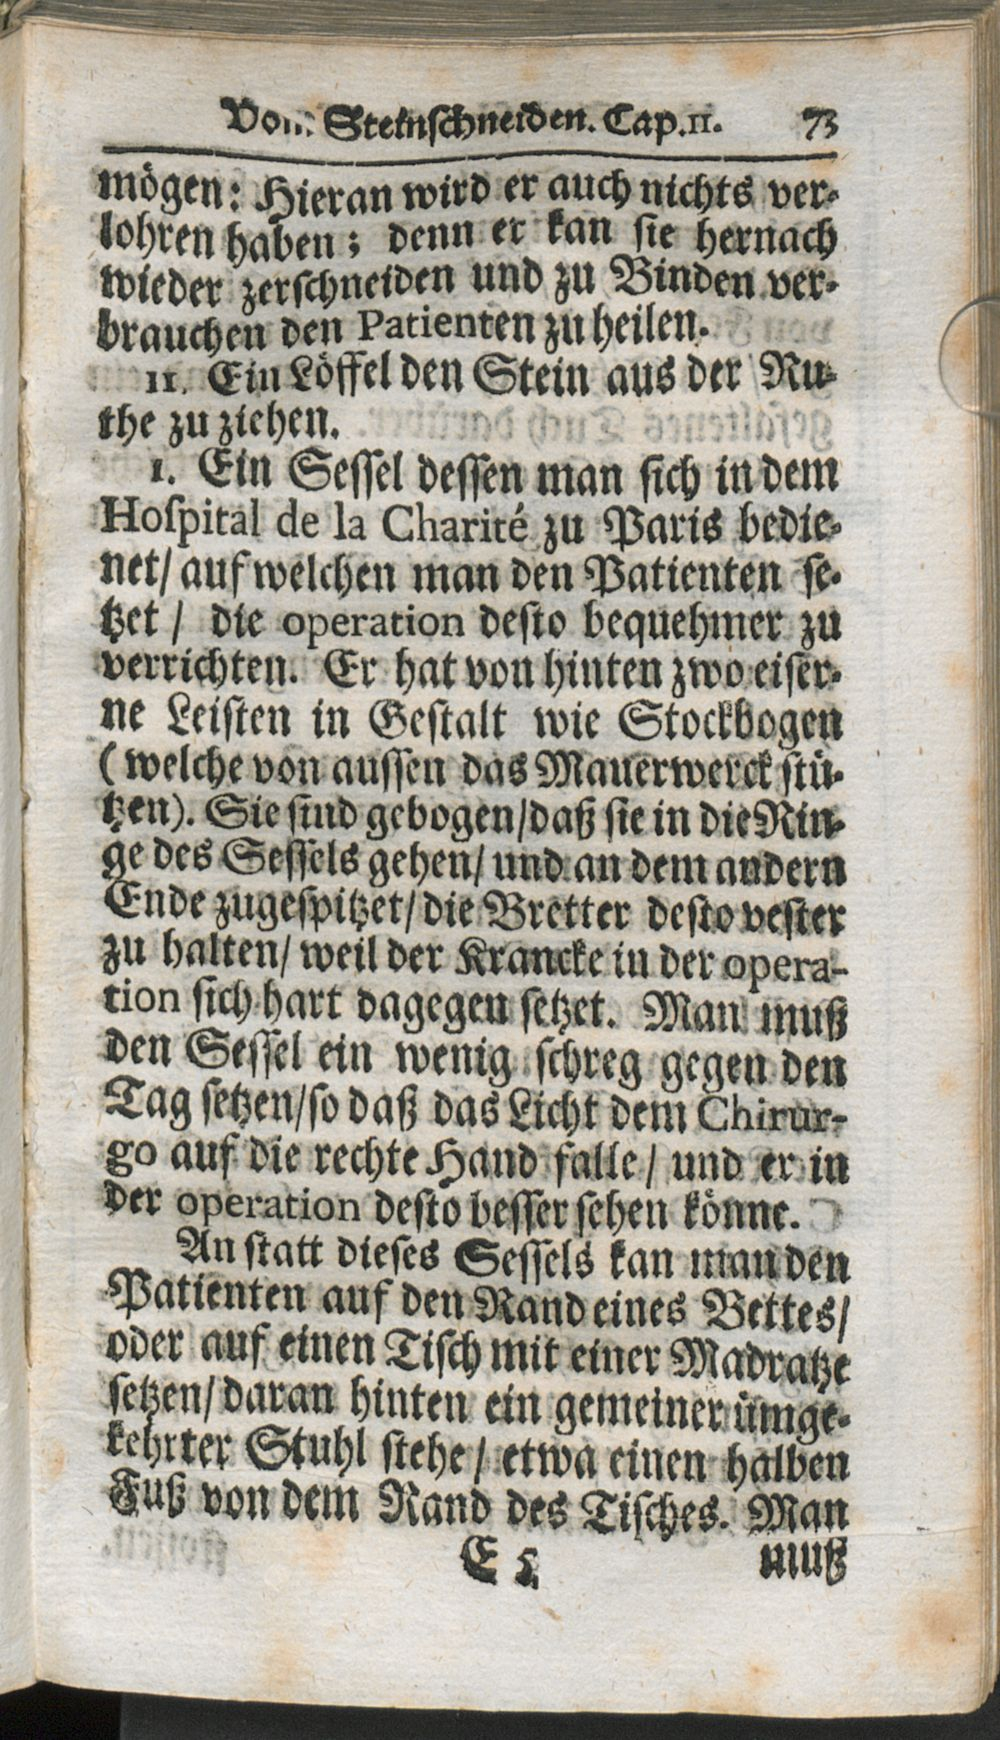 Vom Steinschneiden. Cap. 11. 73
mögen: Hieran wird er auch nichts ver-
lohren haben; denn er kan sie hernach
wieder zerschneiden und zu Binden ver-
brauchen den Patienten zu heilen.
11. Ein Löffel den Stein aus der Ru-
the zu ziehen.
1. Ein Sessel dessen man sich in dem
Hospital de la Charité zu Paris bedie-
net/ auf welchen man den Patienten se-
tzet / die operation desto bequehmer zu
verrichten. Er hat von hinten zwo eiser-
ne Leisten in Gestalt wie Stockbogen
(welche von aussen das Mauerwerck stü-
tzen). Sie sind gebogen/daß sie in die Rin-
ge des Sessels gehen/ und an dem andern
Ende zugespitzet/ die Bretter desto vester
zu halten/ weil der Krancke in der opera-
tion sich hart dagegen setzet. Man muß
den Sessel ein wenig schreg gegen den
Tag setzen/so daß das Licht dem Chirur-
go auf die rechte Hand falle / und er in
der operation desto besser sehen könne.
An statt dieses Sessels kan man den
Patienten auf den Rand eines Bettes/
oder auf einen Tisch mit einer Madratze
setzen/ daran hinten ein gemeiner ümge-
kehrter Stuhl stehe / etwa einen halben
Fuß von dem Rand des Tisches. Man
E 5 muß